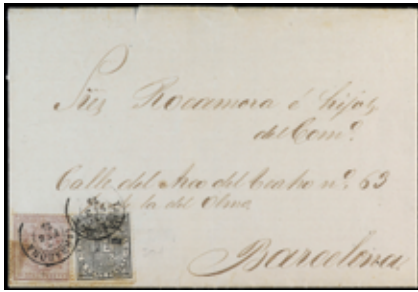 Sres Rocamora é hijos
del Com.º
Calle del Arco del Teatro nº. 63
de la del Olmo
Barcelona